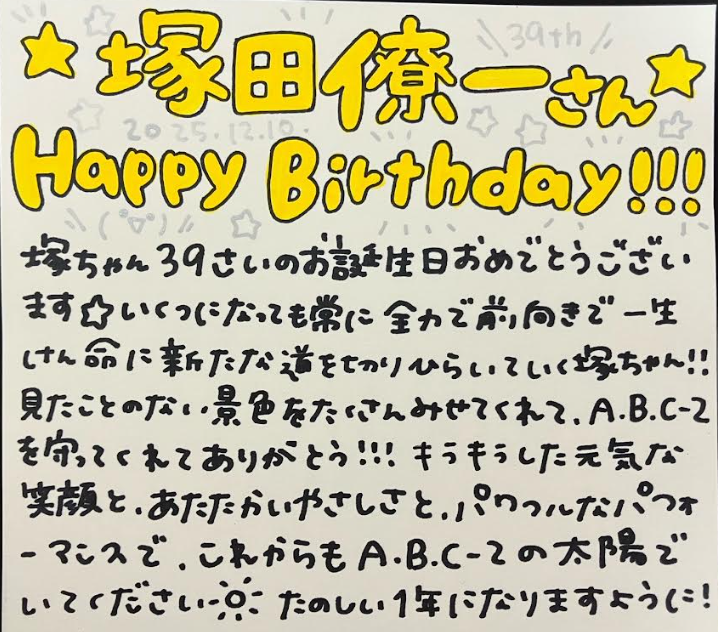 39th
☆塚田僚一さん☆
2025.12.10.
Happy Birthday!!!
\\(°▽°)//☆
塚ちゃん39さいのお誕生日おめでとうござい
ます☆いくつになっても常に全力で前向きで一生
けん命に新たな道を切りひらいていく塚ちゃん!!
見たことのない景色をたくさんみせてくれて、A.B.C-Z
を守ってくれてありがとう!!!キラキラした元気な
笑顔と、あたたかいやさしさと、パワフルなパフォ
ーマンスで、これからもA.B.C-Zの太陽で
いてください☼たのしい1年になりますように!